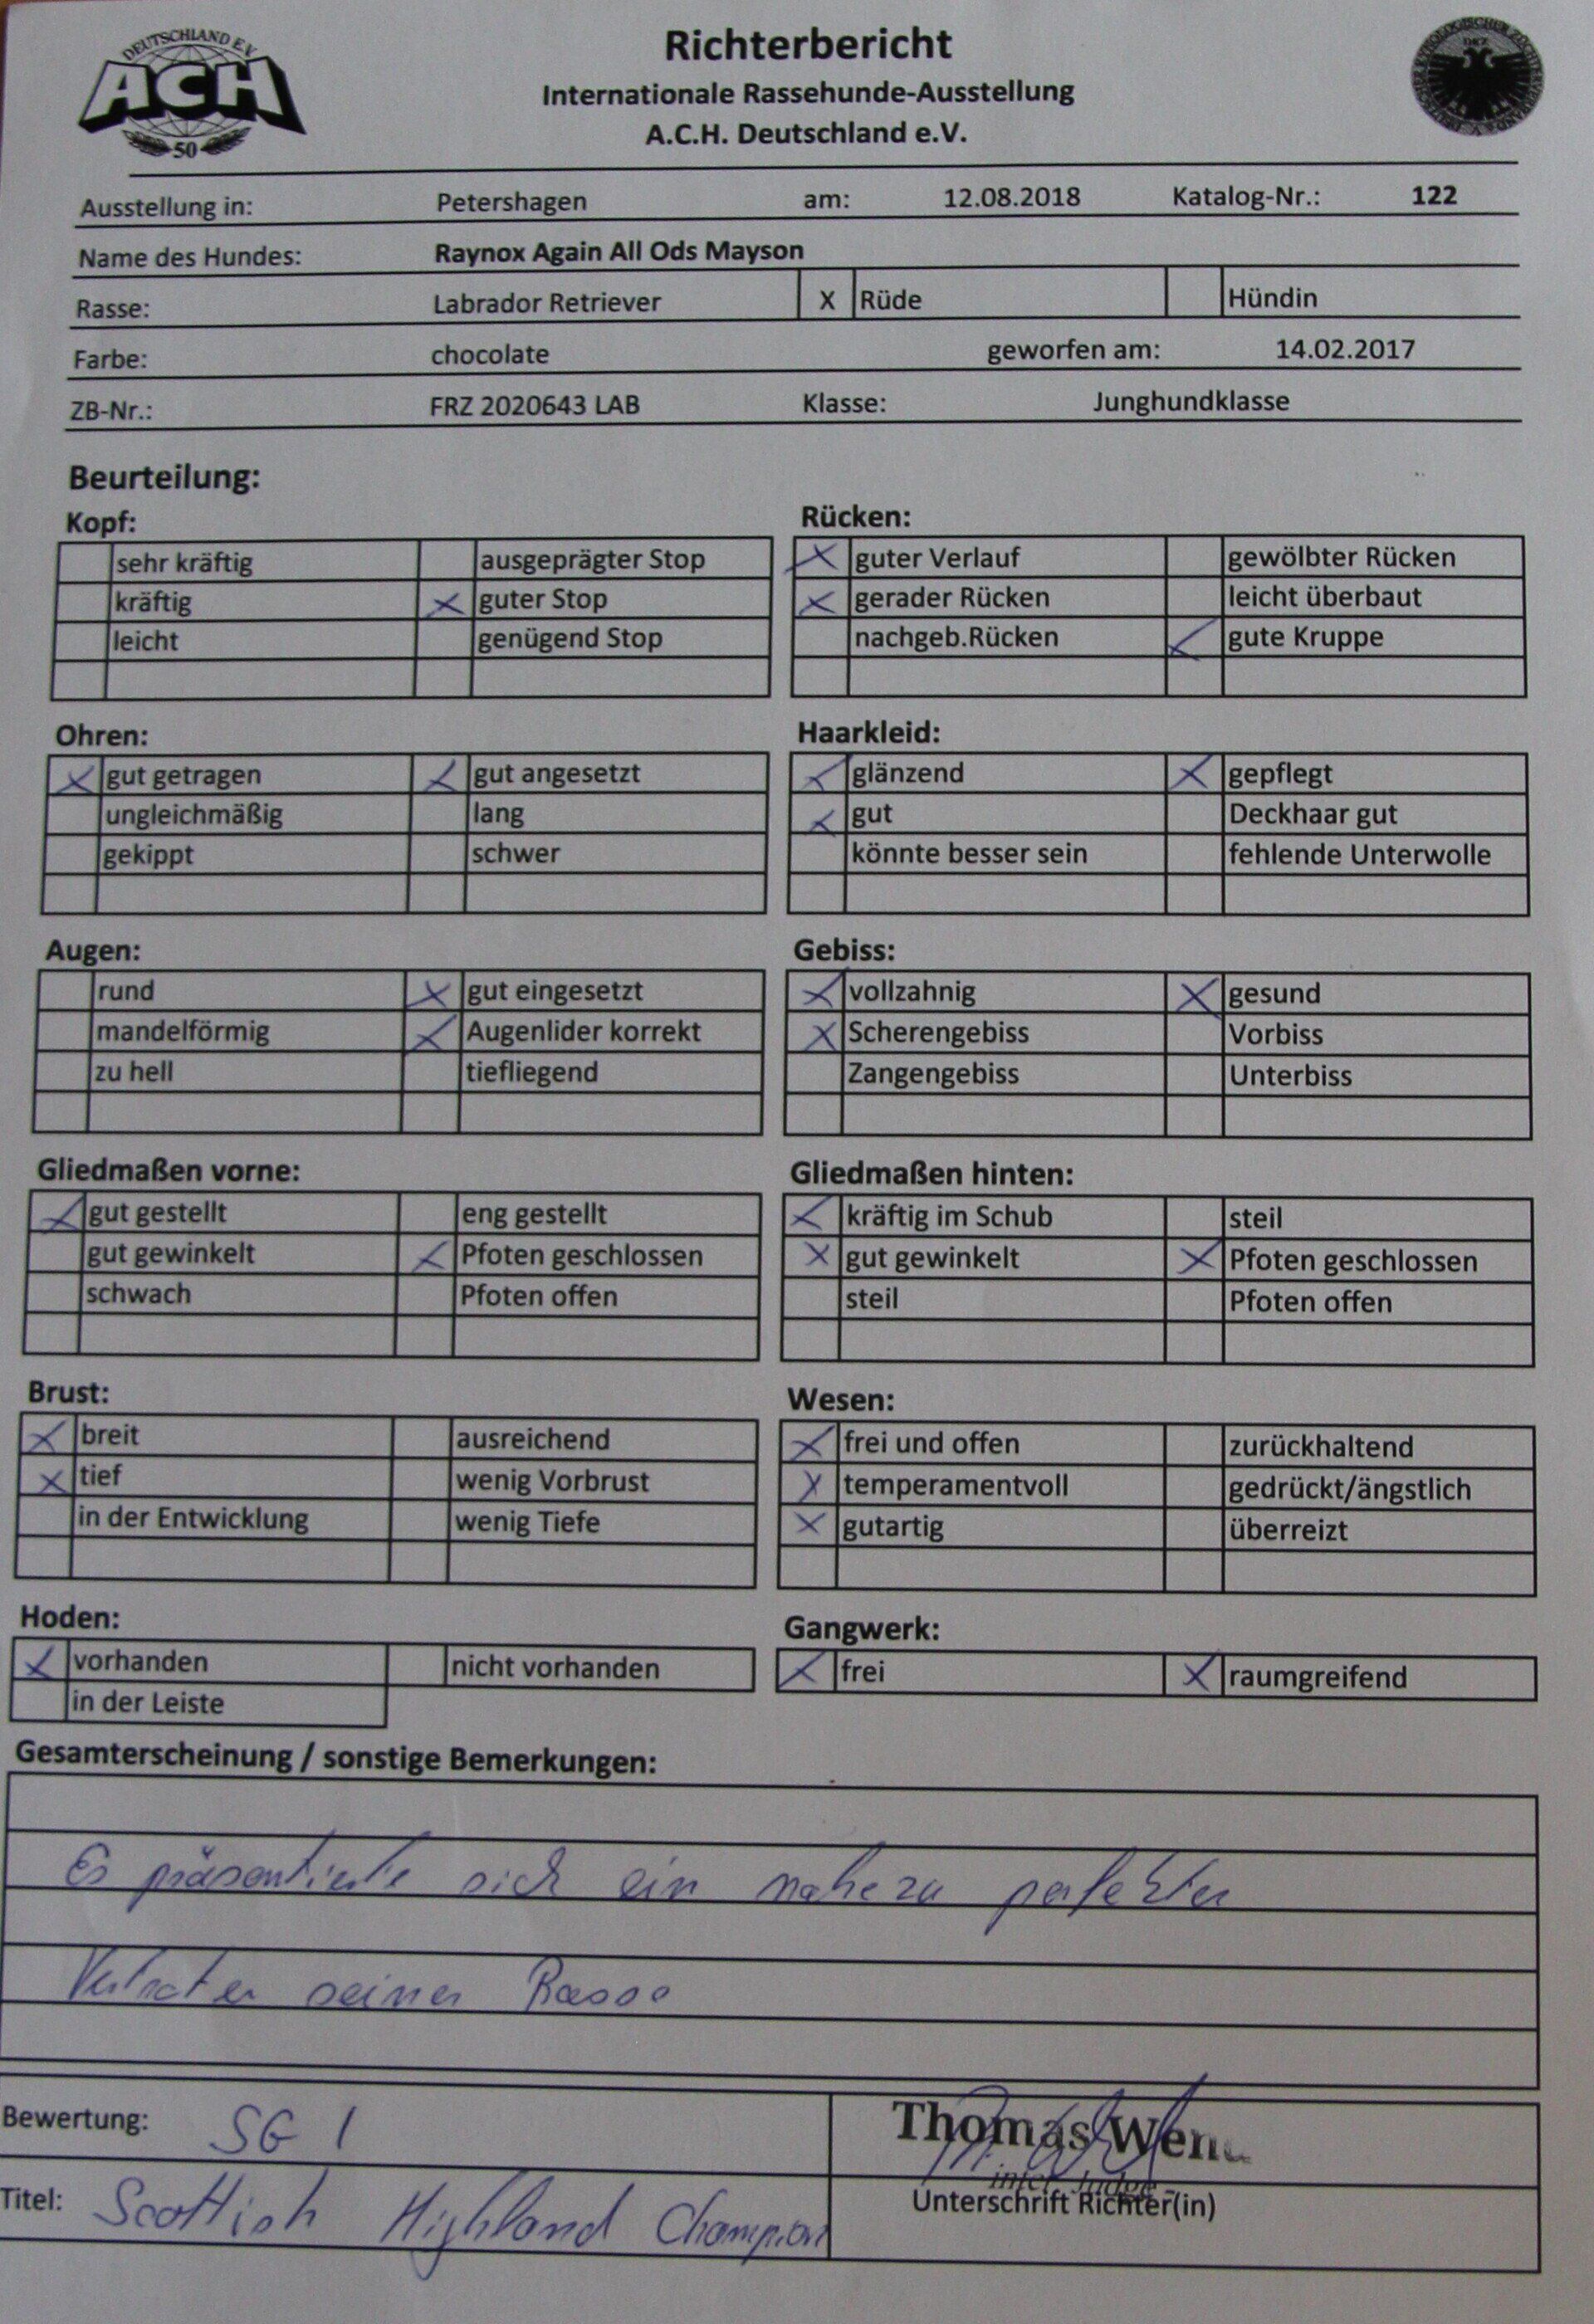 DEUTSCHLAND E.V.
ACH
50
Richterbericht
Internationale Rassehunde-Ausstellung
A.C.H. Deutschland e.V.
Ausstellung in: Petershagen am: 12.08.2018 Katalog-Nr.: 122
Name des Hundes: Raynox Again All Ods Mayson
Rasse: Labrador Retriever X Rüde Hündin
Farbe: chocolate geworfen am: 14.02.2017
ZB-Nr.: FRZ 2020643 LAB Klasse: Junghundklasse
Beurteilung:
Kopf:
sehr kräftig ausgeprägter Stop
kräftig X guter Stop
leicht genügend Stop
Rücken:
X guter Verlauf gewölbter Rücken
X gerader Rücken leicht überbaut
nachgeb.Rücken X gute Kruppe
Ohren:
X gut getragen X gut angesetzt
ungleichmäßig lang
gekippt schwer
Haarkleid:
X glänzend X gepflegt
X gut Deckhaar gut
könnte besser sein fehlende Unterwolle
Augen:
rund X gut eingesetzt
mandelförmig X Augenlider korrekt
zu hell tiefliegend
Gebiss:
X vollzahnig X gesund
X Scherengebiss Vorbiss
Zangengebiss Unterbiss
Gliedmaßen vorne:
X gut gestellt eng gestellt
gut gewinkelt X Pfoten geschlossen
schwach Pfoten offen
Gliedmaßen hinten:
X kräftig im Schub steil
X gut gewinkelt X Pfoten geschlossen
steil Pfoten offen
Brust:
X breit ausreichend
X tief wenig Vorbrust
in der Entwicklung wenig Tiefe
Wesen:
X frei und offen zurückhaltend
X temperamentvoll gedrückt/ängstlich
X gutartig überreizt
Hoden:
X vorhanden nicht vorhanden
in der Leiste
Gangwerk:
X frei X raumgreifend
Gesamterscheinung / sonstige Bemerkungen:
Es präsentierte sich ein nahezu perfekter
Vertreter seiner Rasse
Bewertung: SG 1
Thomas
inter. Judge
Titel: Scottish Highland Champion
Unterschrift Richter(in)